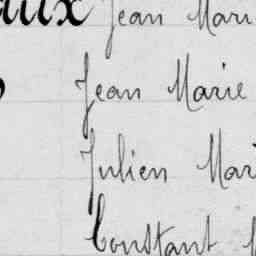 aux Jean Mari
Jean Marie
Julien Mari
Constant